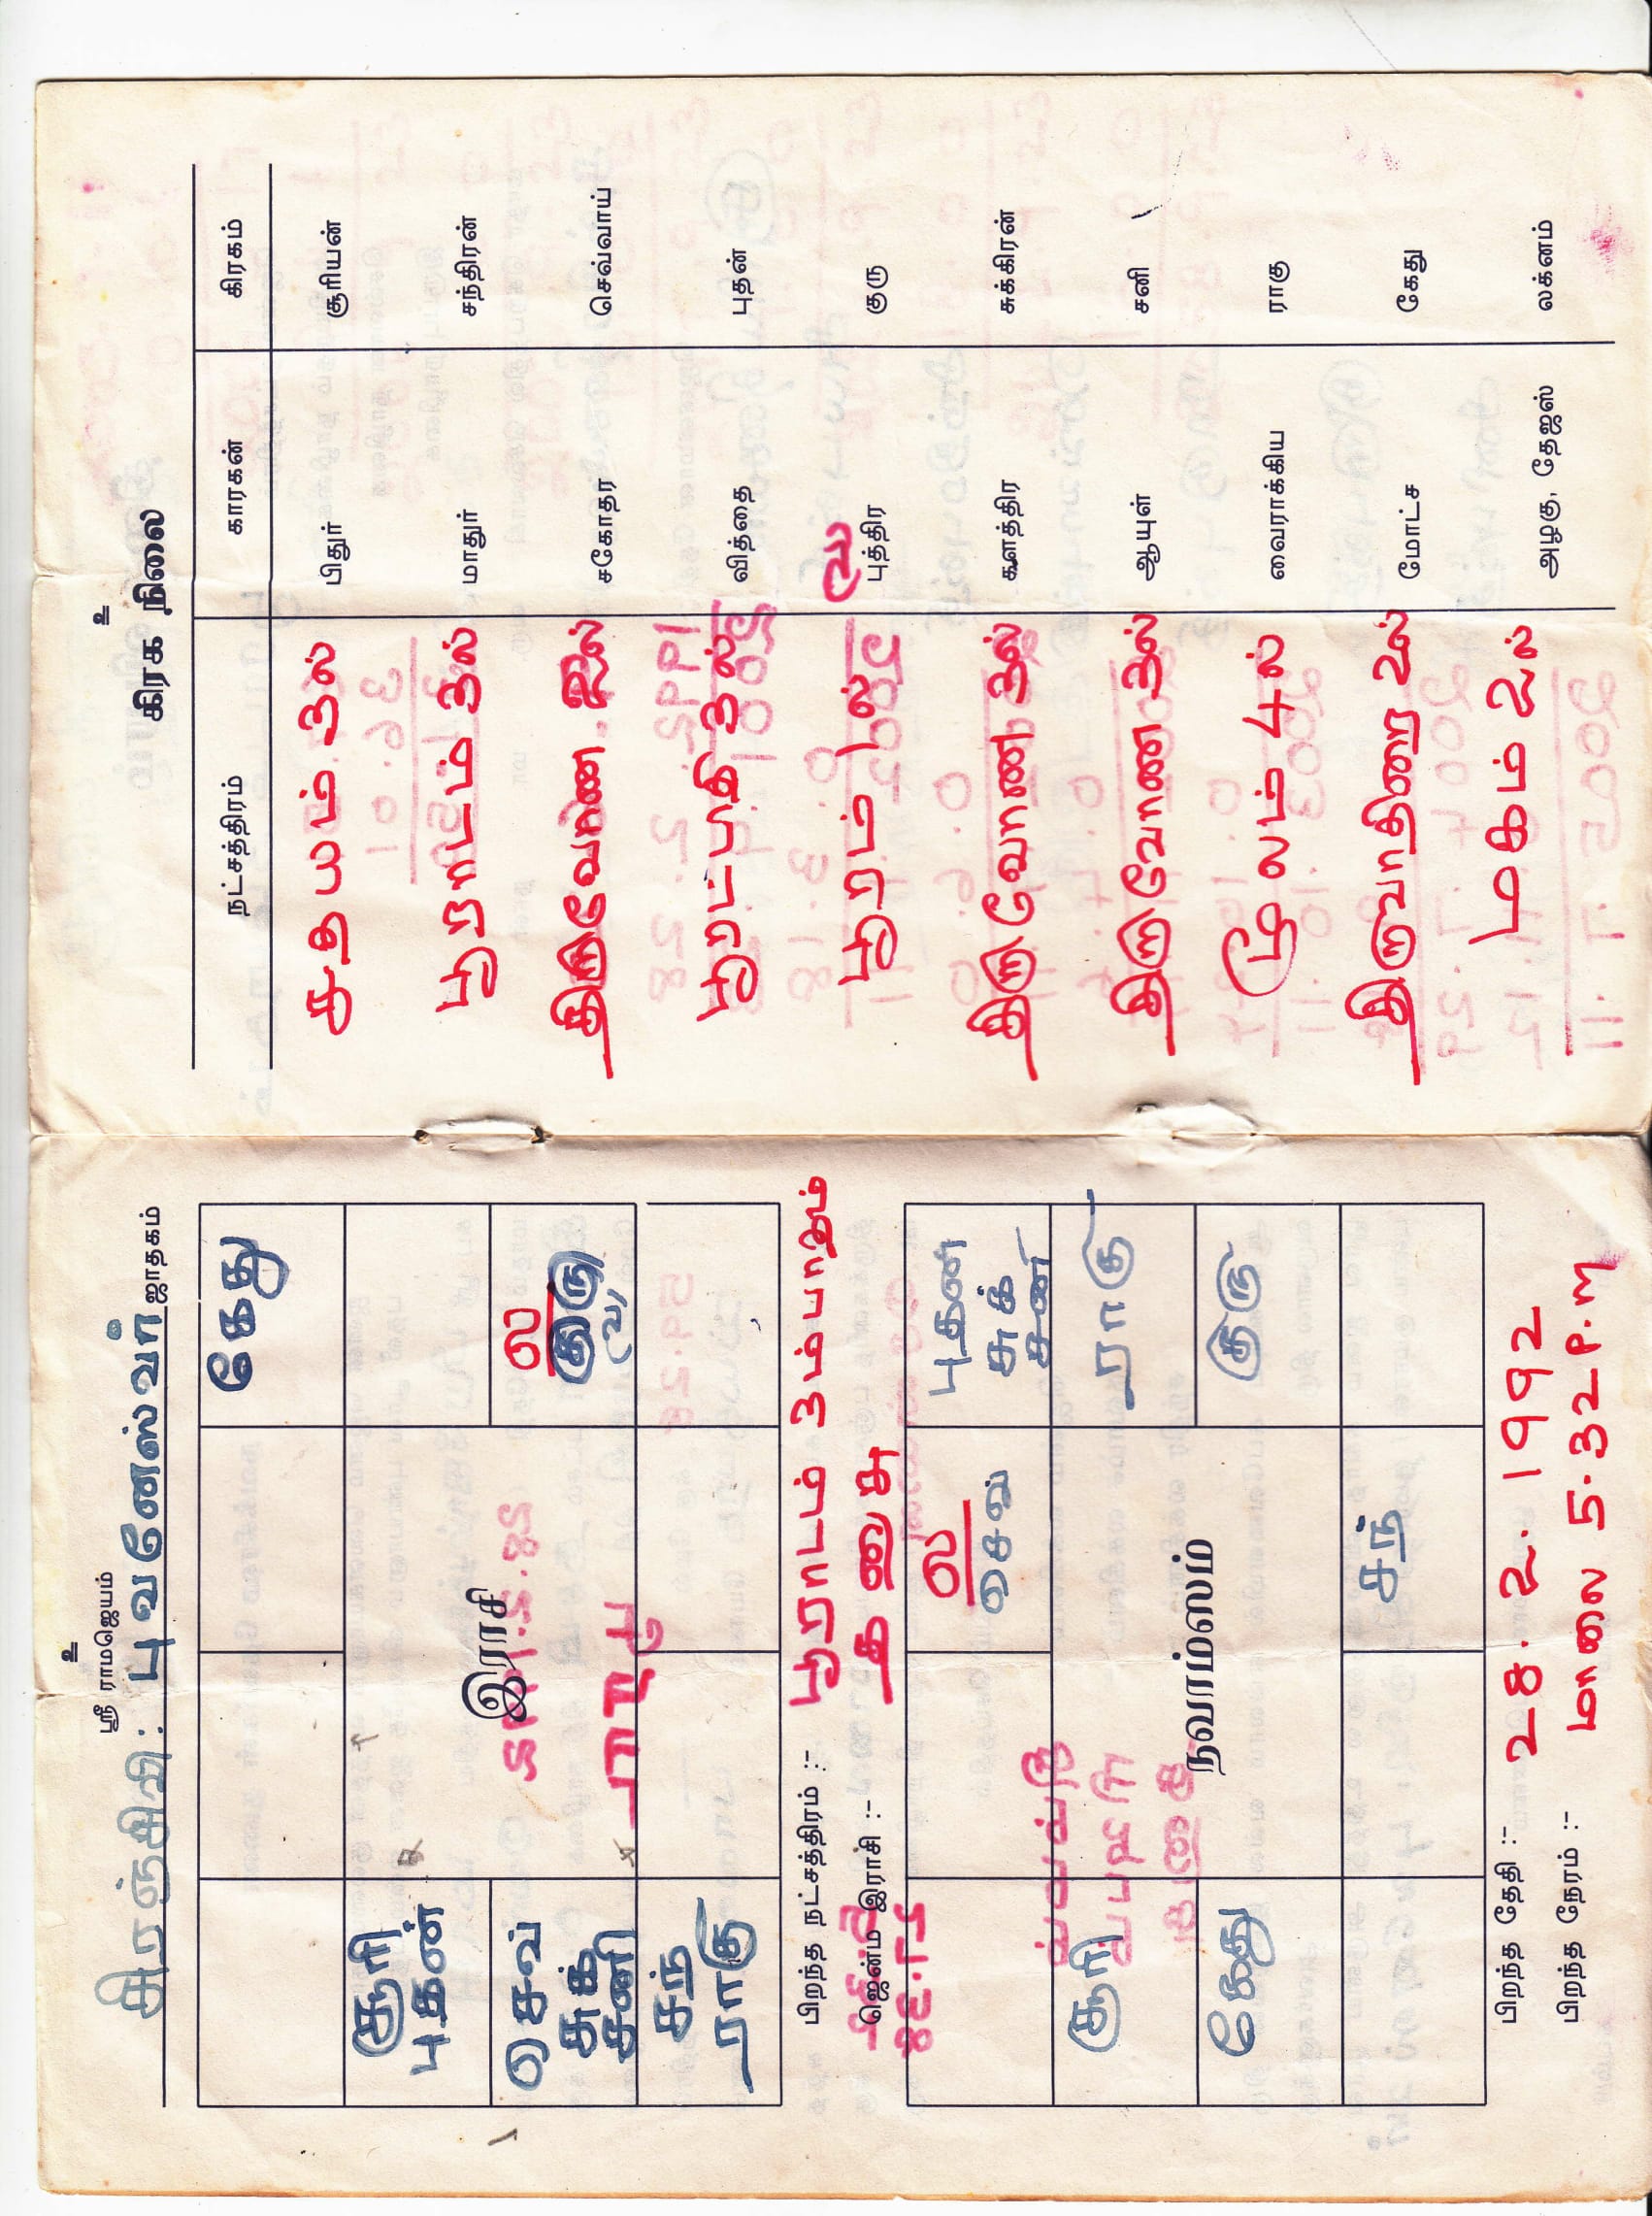 உ
ஸ்ரீ ராமஜெயம்
சிரஞ்சீவி: புவனேஸ்வர் ஜாதகம்
கேது
சூரி
புதன்
இராசி
ல
குரு
(வ)
செவ்
சுக்
சனி
சந்
ராகு
பிறந்த நட்சத்திரம் :- பூராடம் 3ம்பாதம்
ஜென்ம இராசி :- தனுசு
ல
செவ்
புதன்
சுக்
சனி
சூரி
நவாம்ஸம்
ராகு
கேது
குரு
சந்
பிறந்த தேதி :- 28.2.1992
பிறந்த நேரம் :- மாலை 5.32 P.M
உ
கிரக நிலை
நட்சத்திரம் காரகன் கிரகம்
சதயம் 3ல் பிதுர் சூரியன்
பூராடம் 3ல் மாதுர் சந்திரன்
திருவோண 2ல் சகோதர செவ்வாய்
பூரட்டாதி 3ல் வித்தை புதன்
பூரம் 1ல் (வ) புத்திர குரு
திருவோண 3ல் களத்திர சுக்கிரன்
திருவோண 3ல் ஆயுள் சனி
மூலம் 4ல் வைராக்கிய ராகு
திருவாதிரை 2ல் மோட்ச கேது
மகம் 2ல் அழகு, தேஜஸ் லக்னம்